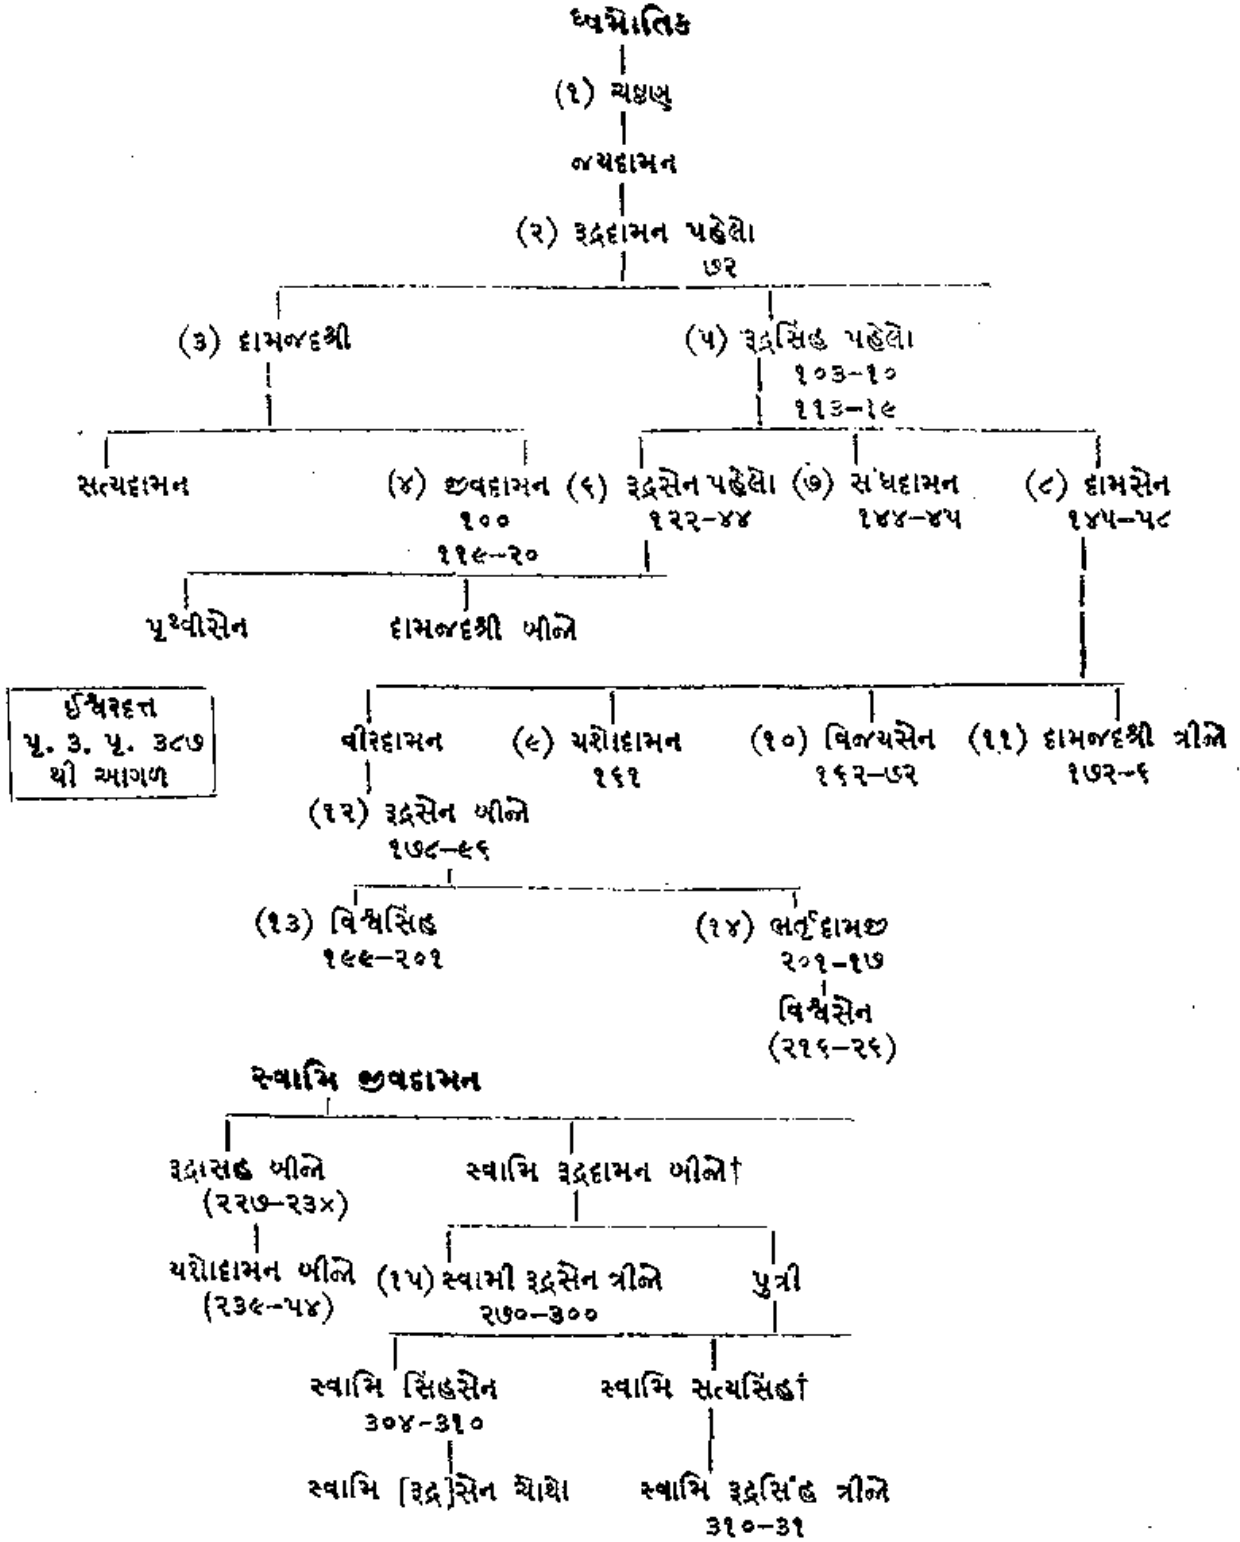 ઘ્વમોતિક
(૧) ચષ્ઠણ
જયદામન
(૨) રૂદ્રદામન પહેલો
૭૨
(૩) દામજદશ્રી
(૫) રૂદ્રસિંહ પહેલો
૧૦૩–૧૦
૧૧૩–૧૯
સત્યદામન
(૪) જીવદામન
૧૦૦
૧૧૯–૨૦
(૬) રૂદ્રસેન પહેલો
૧૨૨–૪૪
(૭) સંઘદામન
૧૪૪–૪૫
(૮) દામસેન
૧૪૫–૫૮
પૃથ્વીસેન
દામજદશ્રી બીજો
ઈશ્વરદત્ત
પૃ. ૩. પૃ. ૩૮૭
થી આગળ
વીરદામન
(૯) યશોદામન
૧૬૧
(૧૦) વિજયસેન
૧૬૨–૭૨
(૧૧) દામજદશ્રી ત્રીજો
૧૭૨–૬
(૧૨) રૂદ્રસેન બીજો
૧૭૮–૯૬
(૧૩) વિશ્વસિંહ
૧૯૯–૨૦૧
(૧૪) ભર્તૃદામજી
૨૦૧–૧૭
વિશ્વસેન
(૨૧૬–૨૬)
સ્વામિ જીવદામન
રૂદ્રાસહ બીજો
(૨૨૭–૨૩×)
સ્વામિ રૂદ્રદામન બીજો†
યશોદામન બીજો
(૨૩૯–૫૪)
(૧૫) સ્વામી રૂદ્રસેન ત્રીજો
૨૭૦–૩૦૦
પુત્રી
સ્વામિ સિંહસેન
૩૦૪–૩૧૦
સ્વામિ સત્યસિંહ†
સ્વામિ [રૂદ્ર]સેન ચોથો
સ્વામિ રૂદ્રસિંહ ત્રીજો
૩૧૦–૩૧